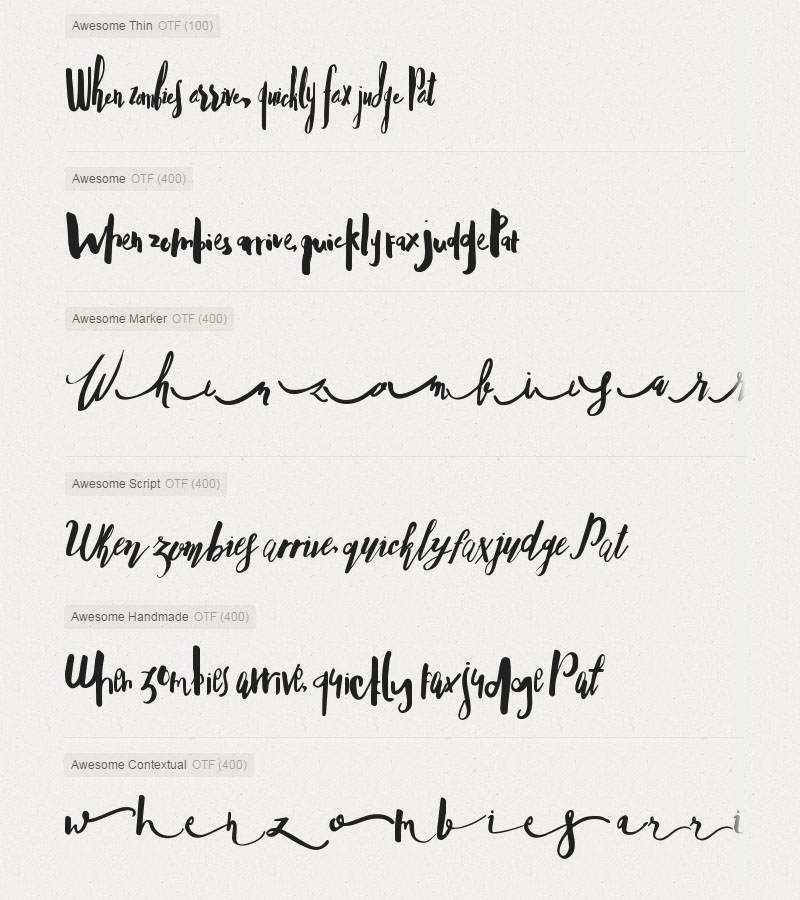 Awesome Thin OTF (100)
When zombies arrive, quickly fax judge Pat
Awesome OTF (400)
When zombies arrive, quickly fax judge Pat
Awesome Marker OTF (400)
When zombies arr
Awesome Script OTF (400)
When zombies arrive, quickly fax judge Pat
Awesome Handmade OTF (400)
When zombies arrive, quickly fax judge Pat
Awesome Contextual OTF (400)
when zombies arri